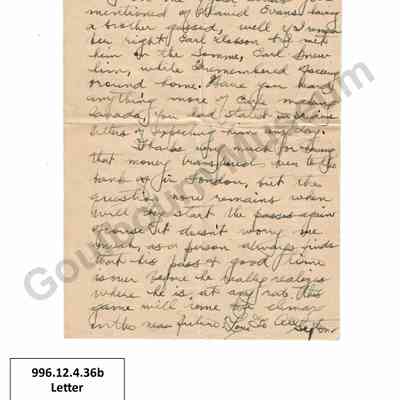 mentioned of Evans having
a brother gassed, well
her right, Carl
him on the Somme, Carl knew
him, while I remembered seeing
around home. Have you heard
anything more of making
Canada, you had stated in
letters of expecting him any day.
Thanks very much for having
that money transferred here to the
bank of in London, but the
question now remains when
will they start the passes again
of course it doesn't worry me
much, as a person always finds
that his pass & good time
is over before he really realizes
where he is, at any rate this
game will come to climax
in the near future. Love to all
Gou Museum
996.12.4.36b
Letter